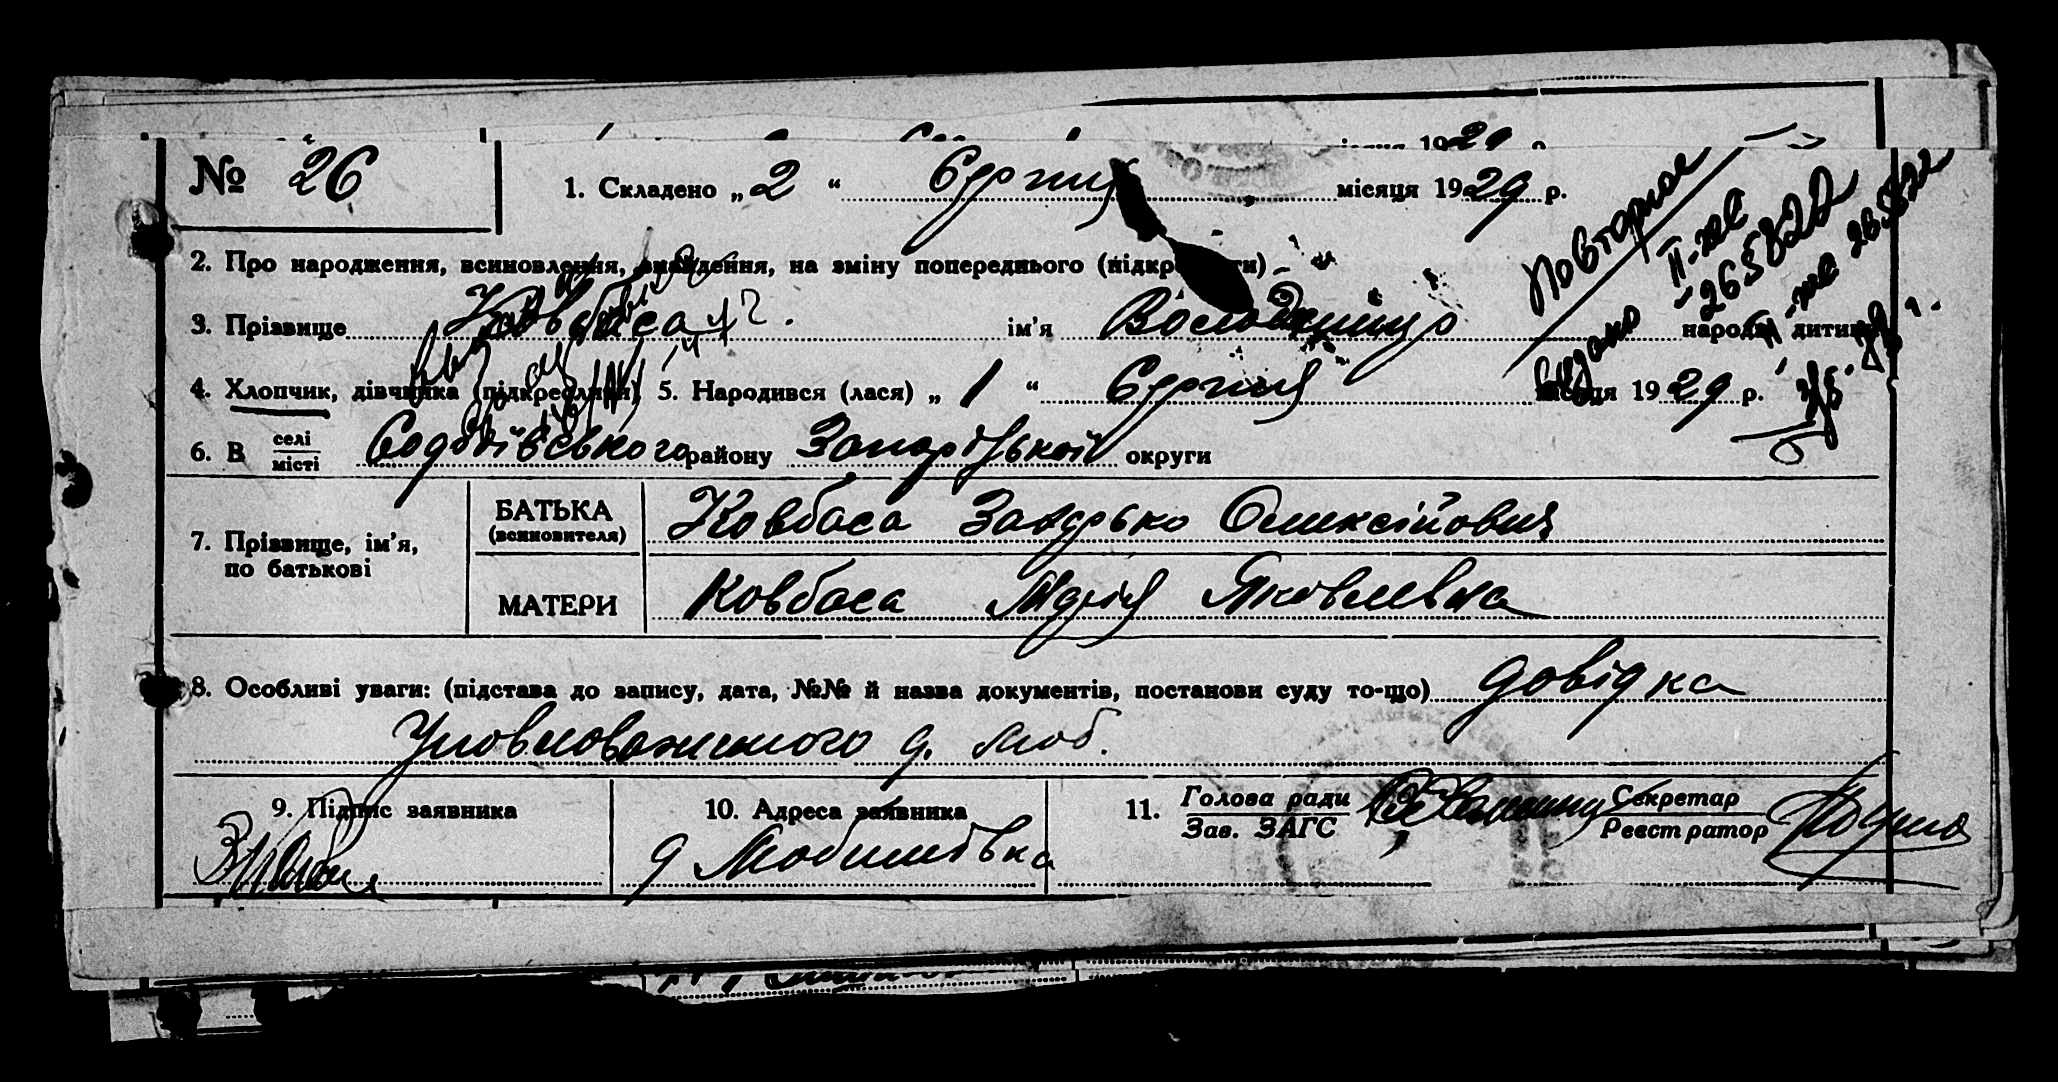 № 26
1. Складено „ 2 “ Серпня місяця 1929 р.
2. Про народження, всиновлення, знайдення, на зміну попереднього (підкреслити)
3. Прізвище Ковбаса ім’я Володимир народж. дитини
4. Хлопчик, дівчинка (підкреслити) 5. Народився (лася) „ 1 “ Серпня місяця 1929 р.
6. В селі місті району Запорізької округи
7. Прізвище, ім’я, по батькові
БАТЬКА (всиновителя) Ковбаса Захарько Олексійович
МАТЕРИ Ковбаса Марія Яковлевна
8. Особливі уваги: (підстава до запису, дата, №№ й назва документів, постанови суду то-що) довідка
Уповноваженого д. Люб.
9. Підпис заявника
10. Адреса заявника
д Любимівка
11. Голова ради Зав. ЗАГС Секретар Реєстратор
Повторное
видано II-жс
265822